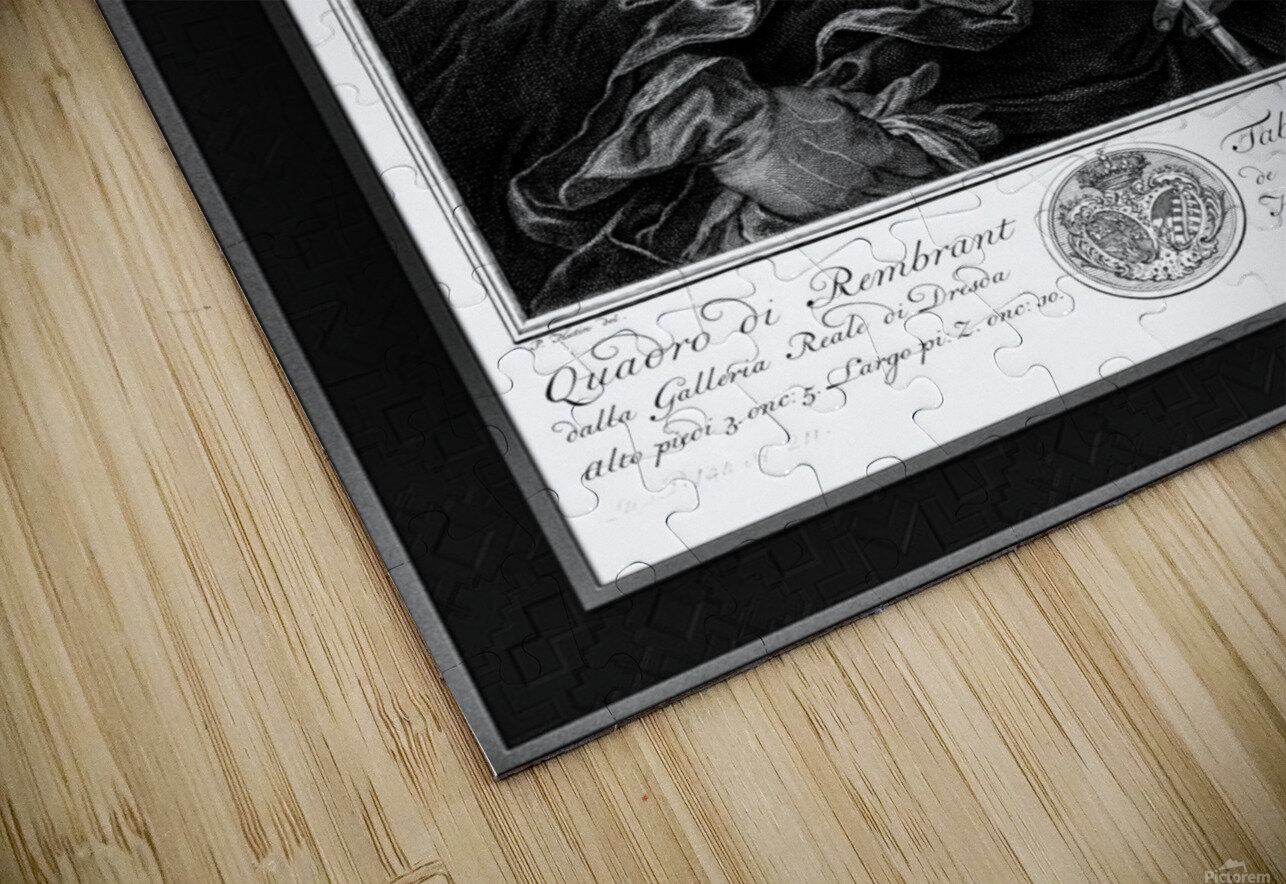 Quadro di Rembrant
dalla Galleria Reale di Dresda
Alto piedi 3. onc: 5. Largo pi: 2. onc: 10.
Tab
de
Pictorem